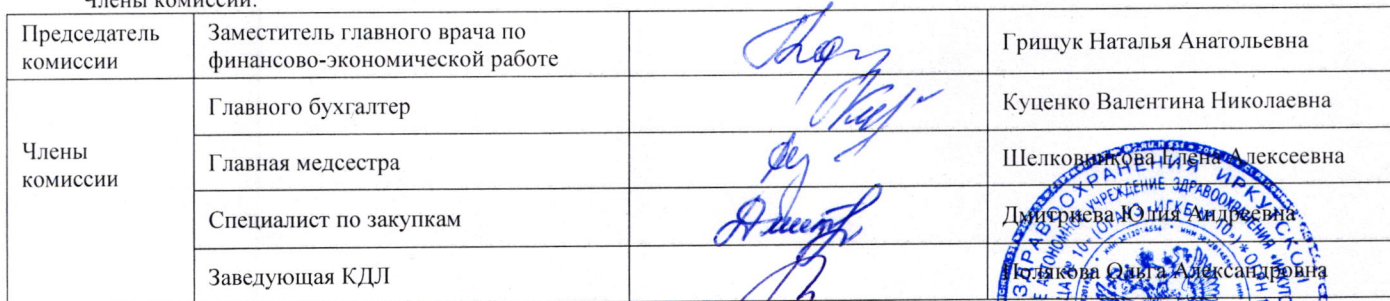 Члены комиссии:
Председатель комиссии
Заместитель главного врача по финансово-экономической работе
Грищук Наталья Анатольевна
Члены комиссии
Главного бухгалтер
Куценко Валентина Николаевна
Главная медсестра
Шелковникова Елена Алексеевна
Специалист по закупкам
Дмитриева Юлия Андреевна
Заведующая КДЛ
Полякова Ольга Александровна
ЗДРАВООХРАНЕНИЯ ИРКУТСКОЙ
АВТОНОМНОЕ УЧРЕЖДЕНИЕ ЗДРАВООХРАНЕНИЯ